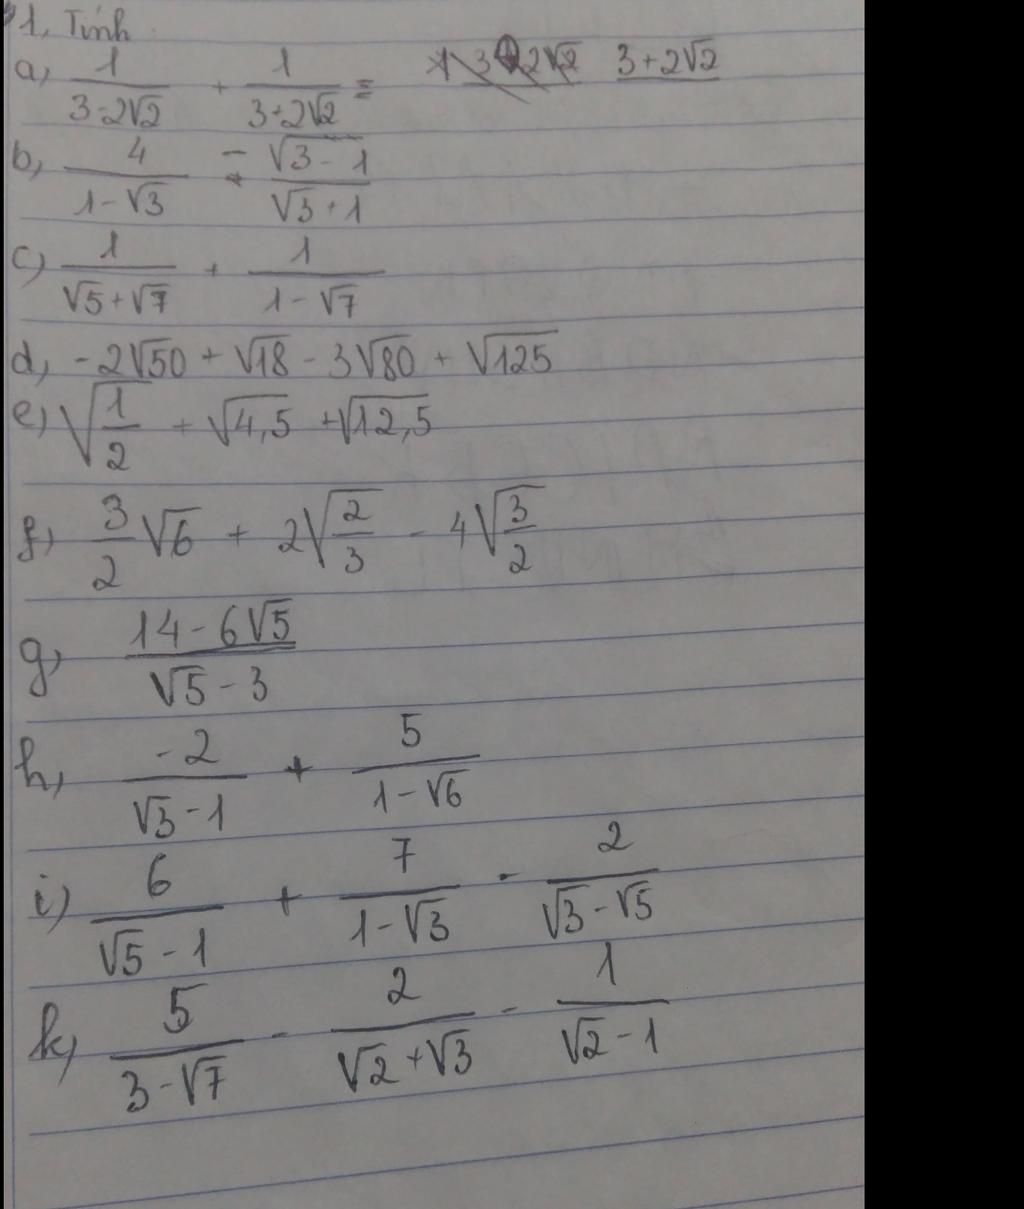 1, Tính
a, 1/(3-2√2) + 1/(3+2√2) = 3+2√2
b, 4/(1-√3) - (√3-1)/(√3+1)
c) 1/(√5+√7) + 1/(1-√7)
d, -2√50 + √18 - 3√80 + √125
e) √(1/2) + √4,5 + √12,5
f) 3/2 √6 + 2√(2/3) - 4√(3/2)
g, (14-6√5)/(√5-3)
h, -2/(√3-1) + 5/(1-√6)
i) 6/(√5-1) + 7/(1-√3) - 2/(√3-√5)
k, 5/(3-√7) - 2/(√2+√3) - 1/(√2-1)